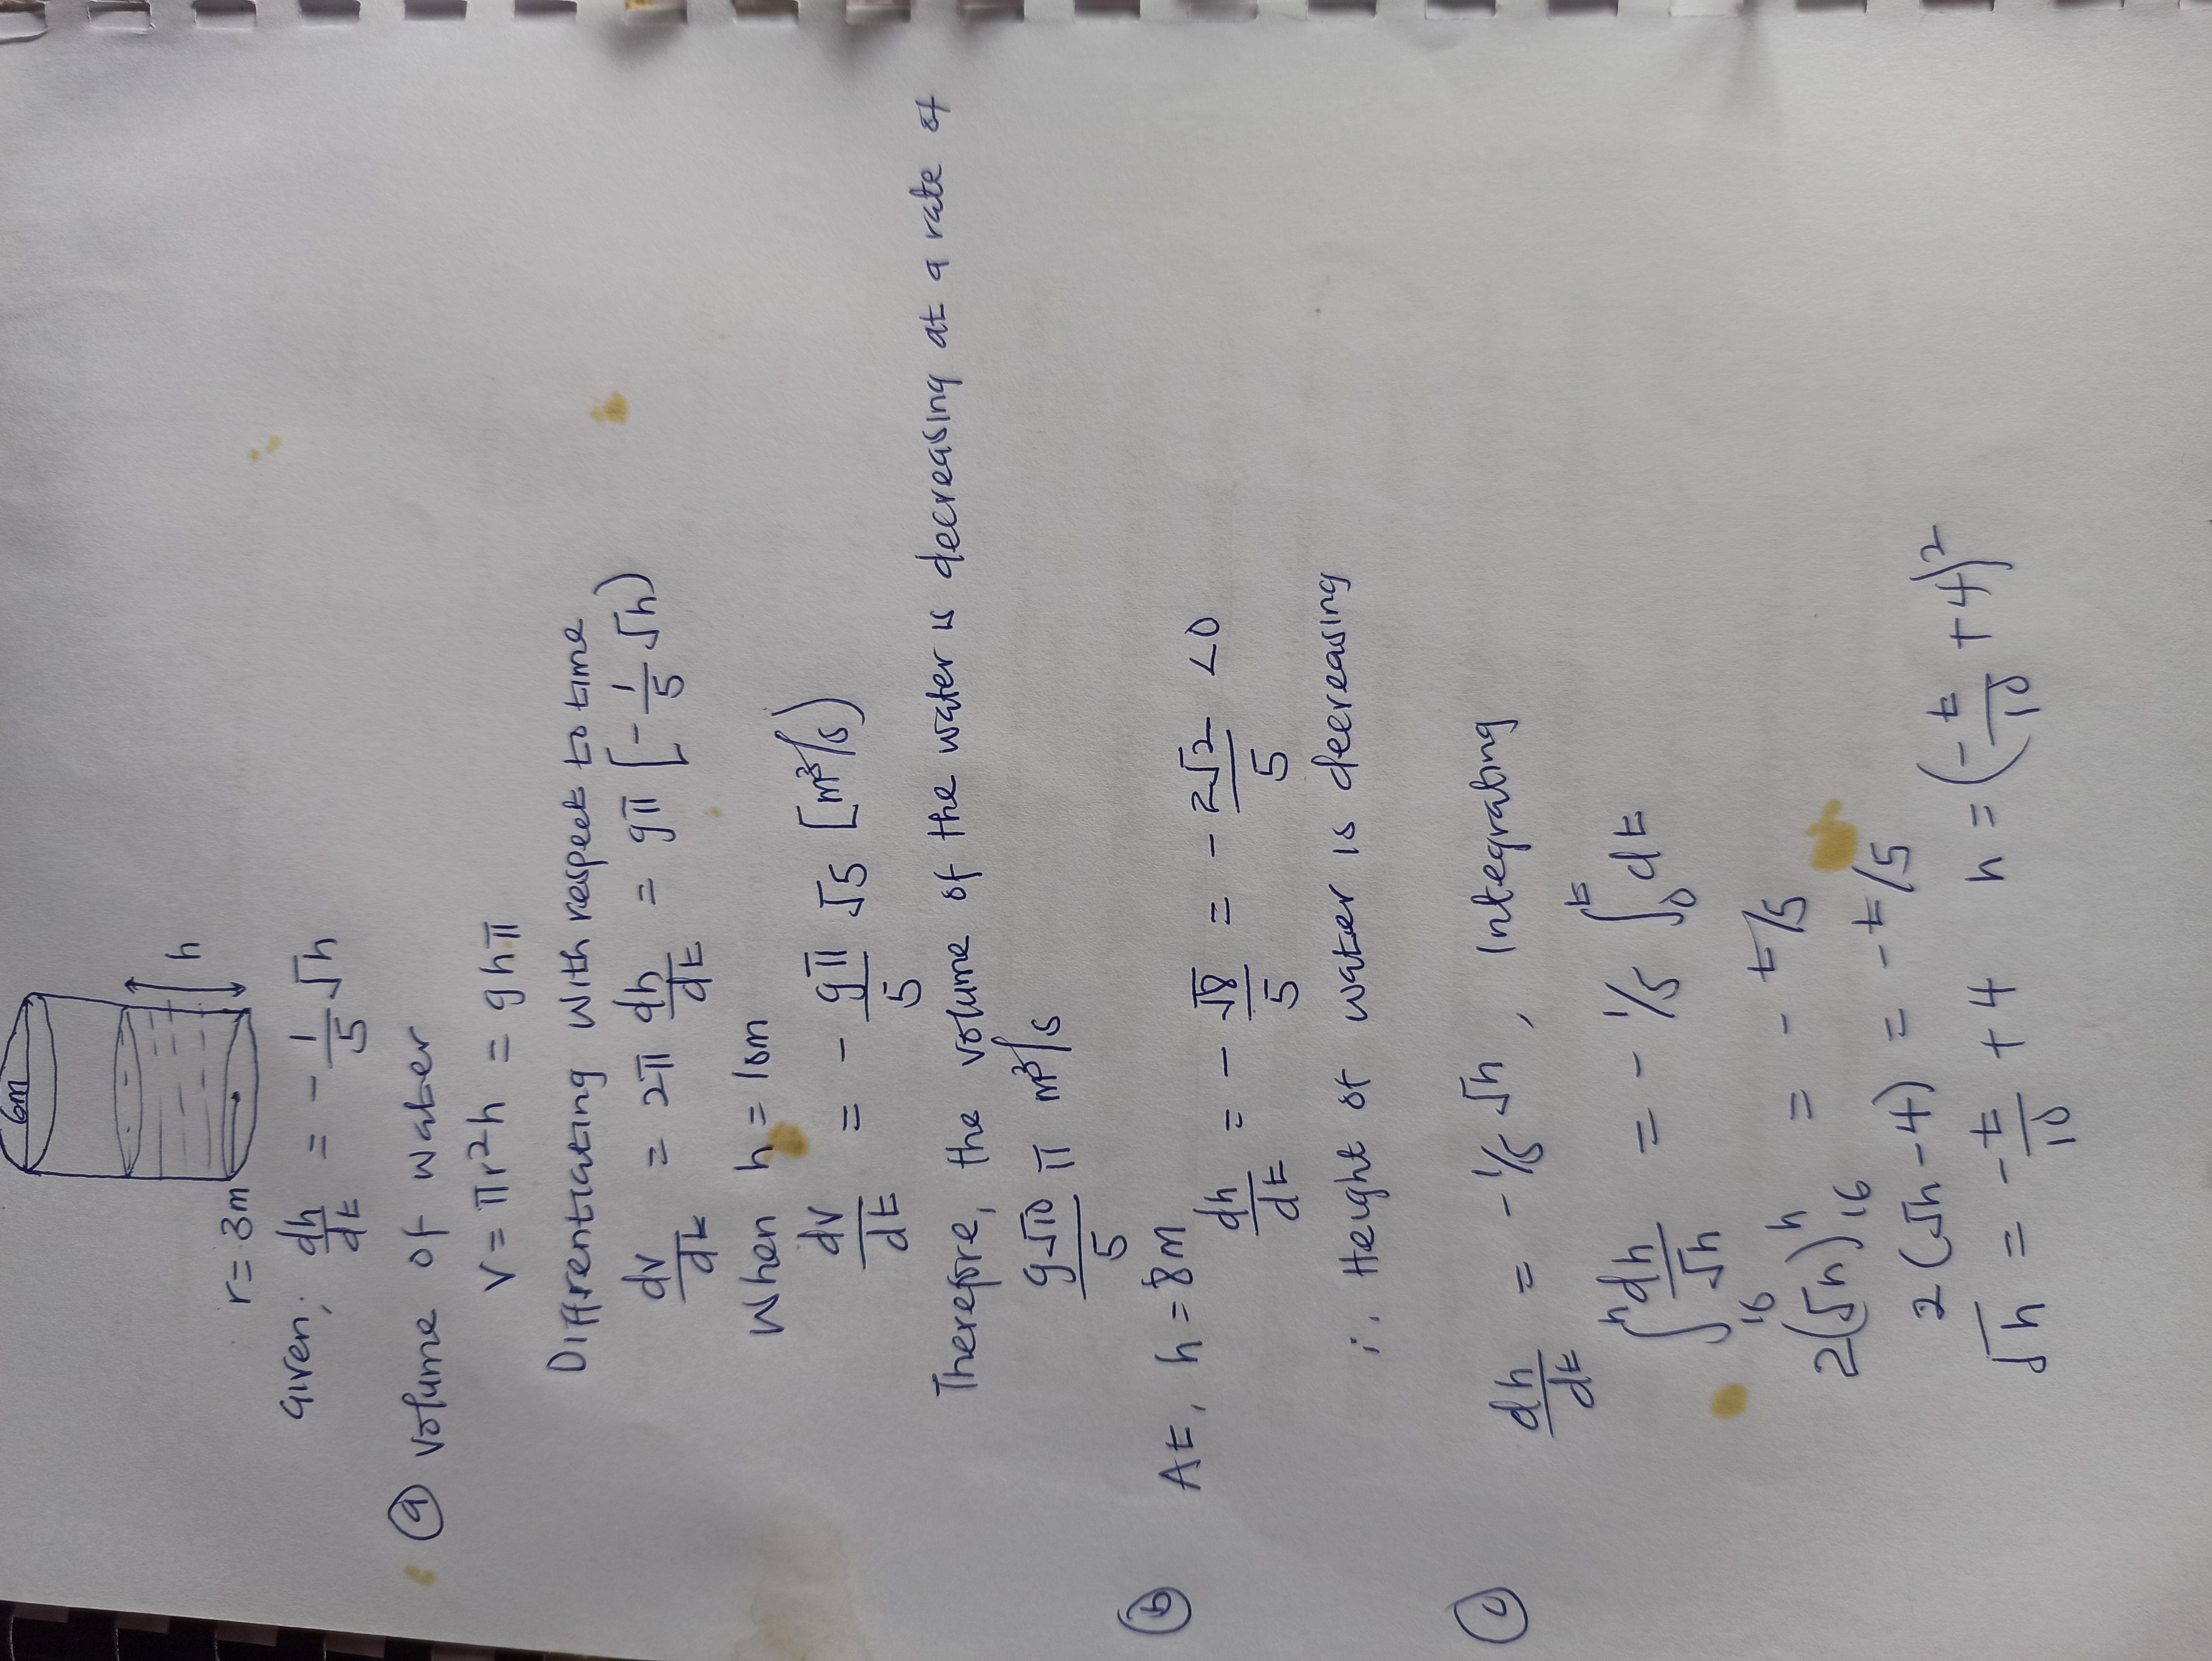 6m
h
r = 3m
Given; dh/dt = - 1/5 √h
(a) Volume of water
V = πr²h = 9hπ
Diffrentiating with respect to time
dv/dt = 2π dh/dt = 9π [- 1/5 √h)
When h = 10m
dv/dt = - 9π/5 √5 [m³/s)
Therefore, the volume of the water is decreasing at a rate of
9√10/5 π m³/s
(b) At, h = 8m
dh/dt = - √8/5 = - 2√2/5 < 0
∴ Height of water is decreasing
(c) dh/dt = - 1/5 √h, Integrating
∫₁₆ʰ dh/√h = - 1/5 ∫₀ᵗ dt
2(√h)₁₆ʰ = - t/5
2(√h - 4) = - t/5
√h = - t/10 + 4 h = (- t/10 + 4)²